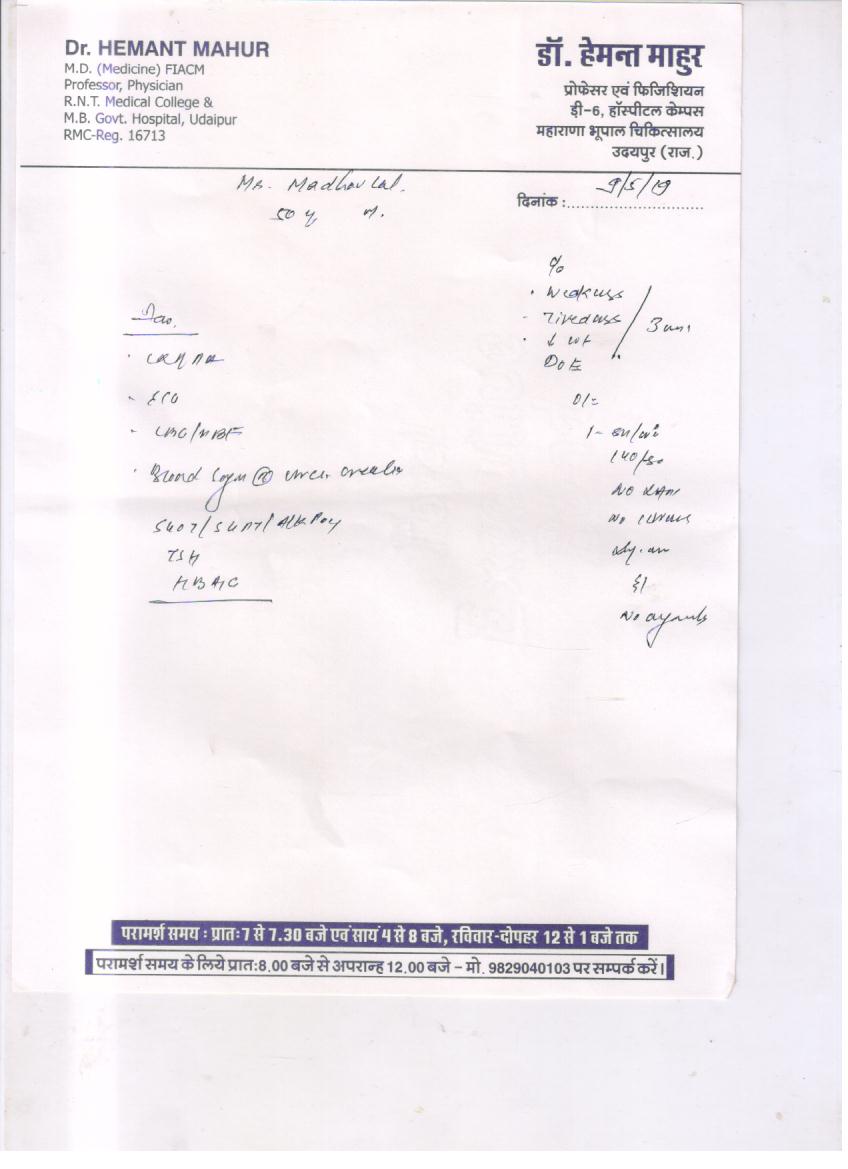 Dr. HEMANT MAHUR
M.D. (Medicine) FIACM
Professor, Physician
R.N.T. Medical College &
M.B. Govt. Hospital, Udaipur
RMC-Reg. 16713
डॉ. हेमन्त माहुर
प्रोफेसर एवं फिजिशियन
डी-6, हॉस्पीटल केम्पस
महाराणा भूपाल चिकित्सालय
उदयपुर (राज.)
Mr. Madhav Lal.
50 y M.
दिनांक : 9/5/19
Weakness
Tiredness
↓ wt
DOE
O/E
140/80
No
No
No
ECG
CBC/MBF
Blood Sugar (R) Urea, Creatin
SGOT/SGPT/Alk Poy
TSH
HBA1C
परामर्श समय : प्रातः7 से 7.30 बजे एवं सायं 4 से 8 बजे, रविवार-दोपहर 12 से 1 बजे तक
परामर्श समय के लिये प्रातः8.00 बजे से अपरान्ह 12.00 बजे - मो. 9829040103 पर सम्पर्क करें।